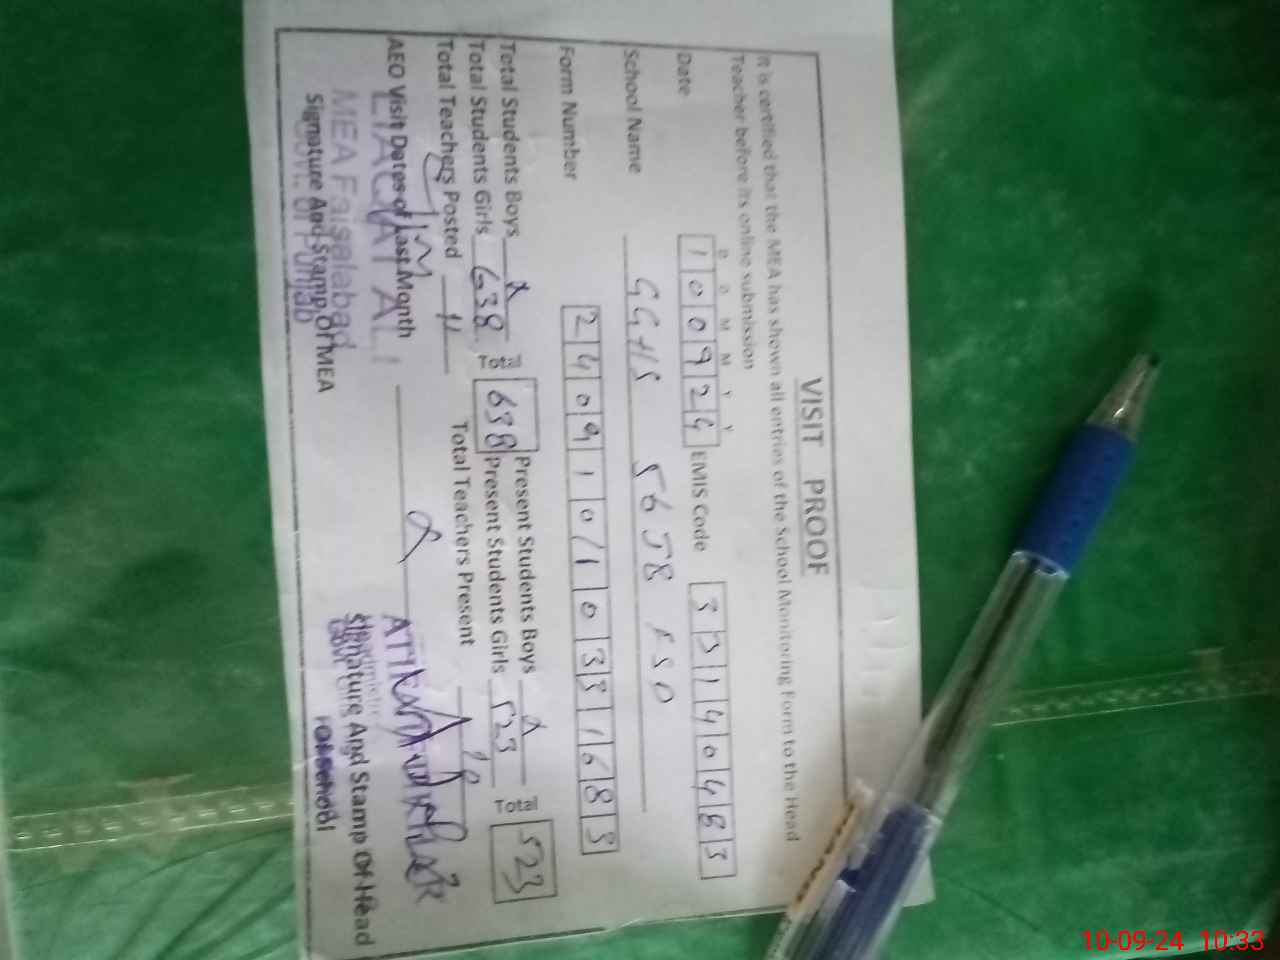 VISIT PROOF
It is certified that the MEA has shown all entries of the School Monitoring Form to the Head
Teacher before its online submission
D D M M Y Y
Date 100924 EMIS Code 33140483
School Name GGHS 56 JB FSD
Form Number 24091010331683
Total Students Boys x Total Present Students Boys x Total
Total Students Girls 638 638 Present Students Girls 523 523
Total Teachers Posted 11 Total Teachers Present 10
AEO Visit Dates of Last Month
LIAQAT ALI
MEA Faisalabad
Govt. of Punjab
Signature And Stamp Of MEA
Signature And Stamp Of Head
Of School
10-09-24 10:33